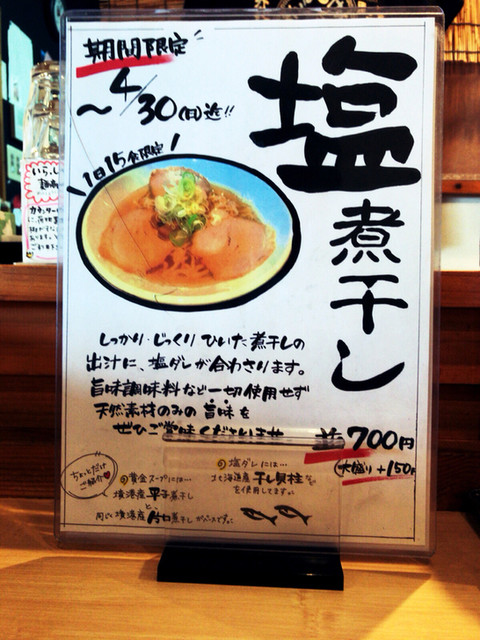 期間限定
〜4/30(日)迄!!
1日15食限定
塩煮干し
しっかり・じっくりひいた煮干しの
出汁に、塩ダレが合わさります。
旨味調味料など一切使用せず
天然素材のみの旨味を
ぜひご賞味くださいませ
並700円
(大盛り+150円
ちょっとだけ
ご紹介
◎黄金スープには…
境港産平子煮干し
と、
同じく境港産片口煮干しがベースです。
◎塩ダレには…
北海道産干し貝柱を
を使用してます。
いらっし